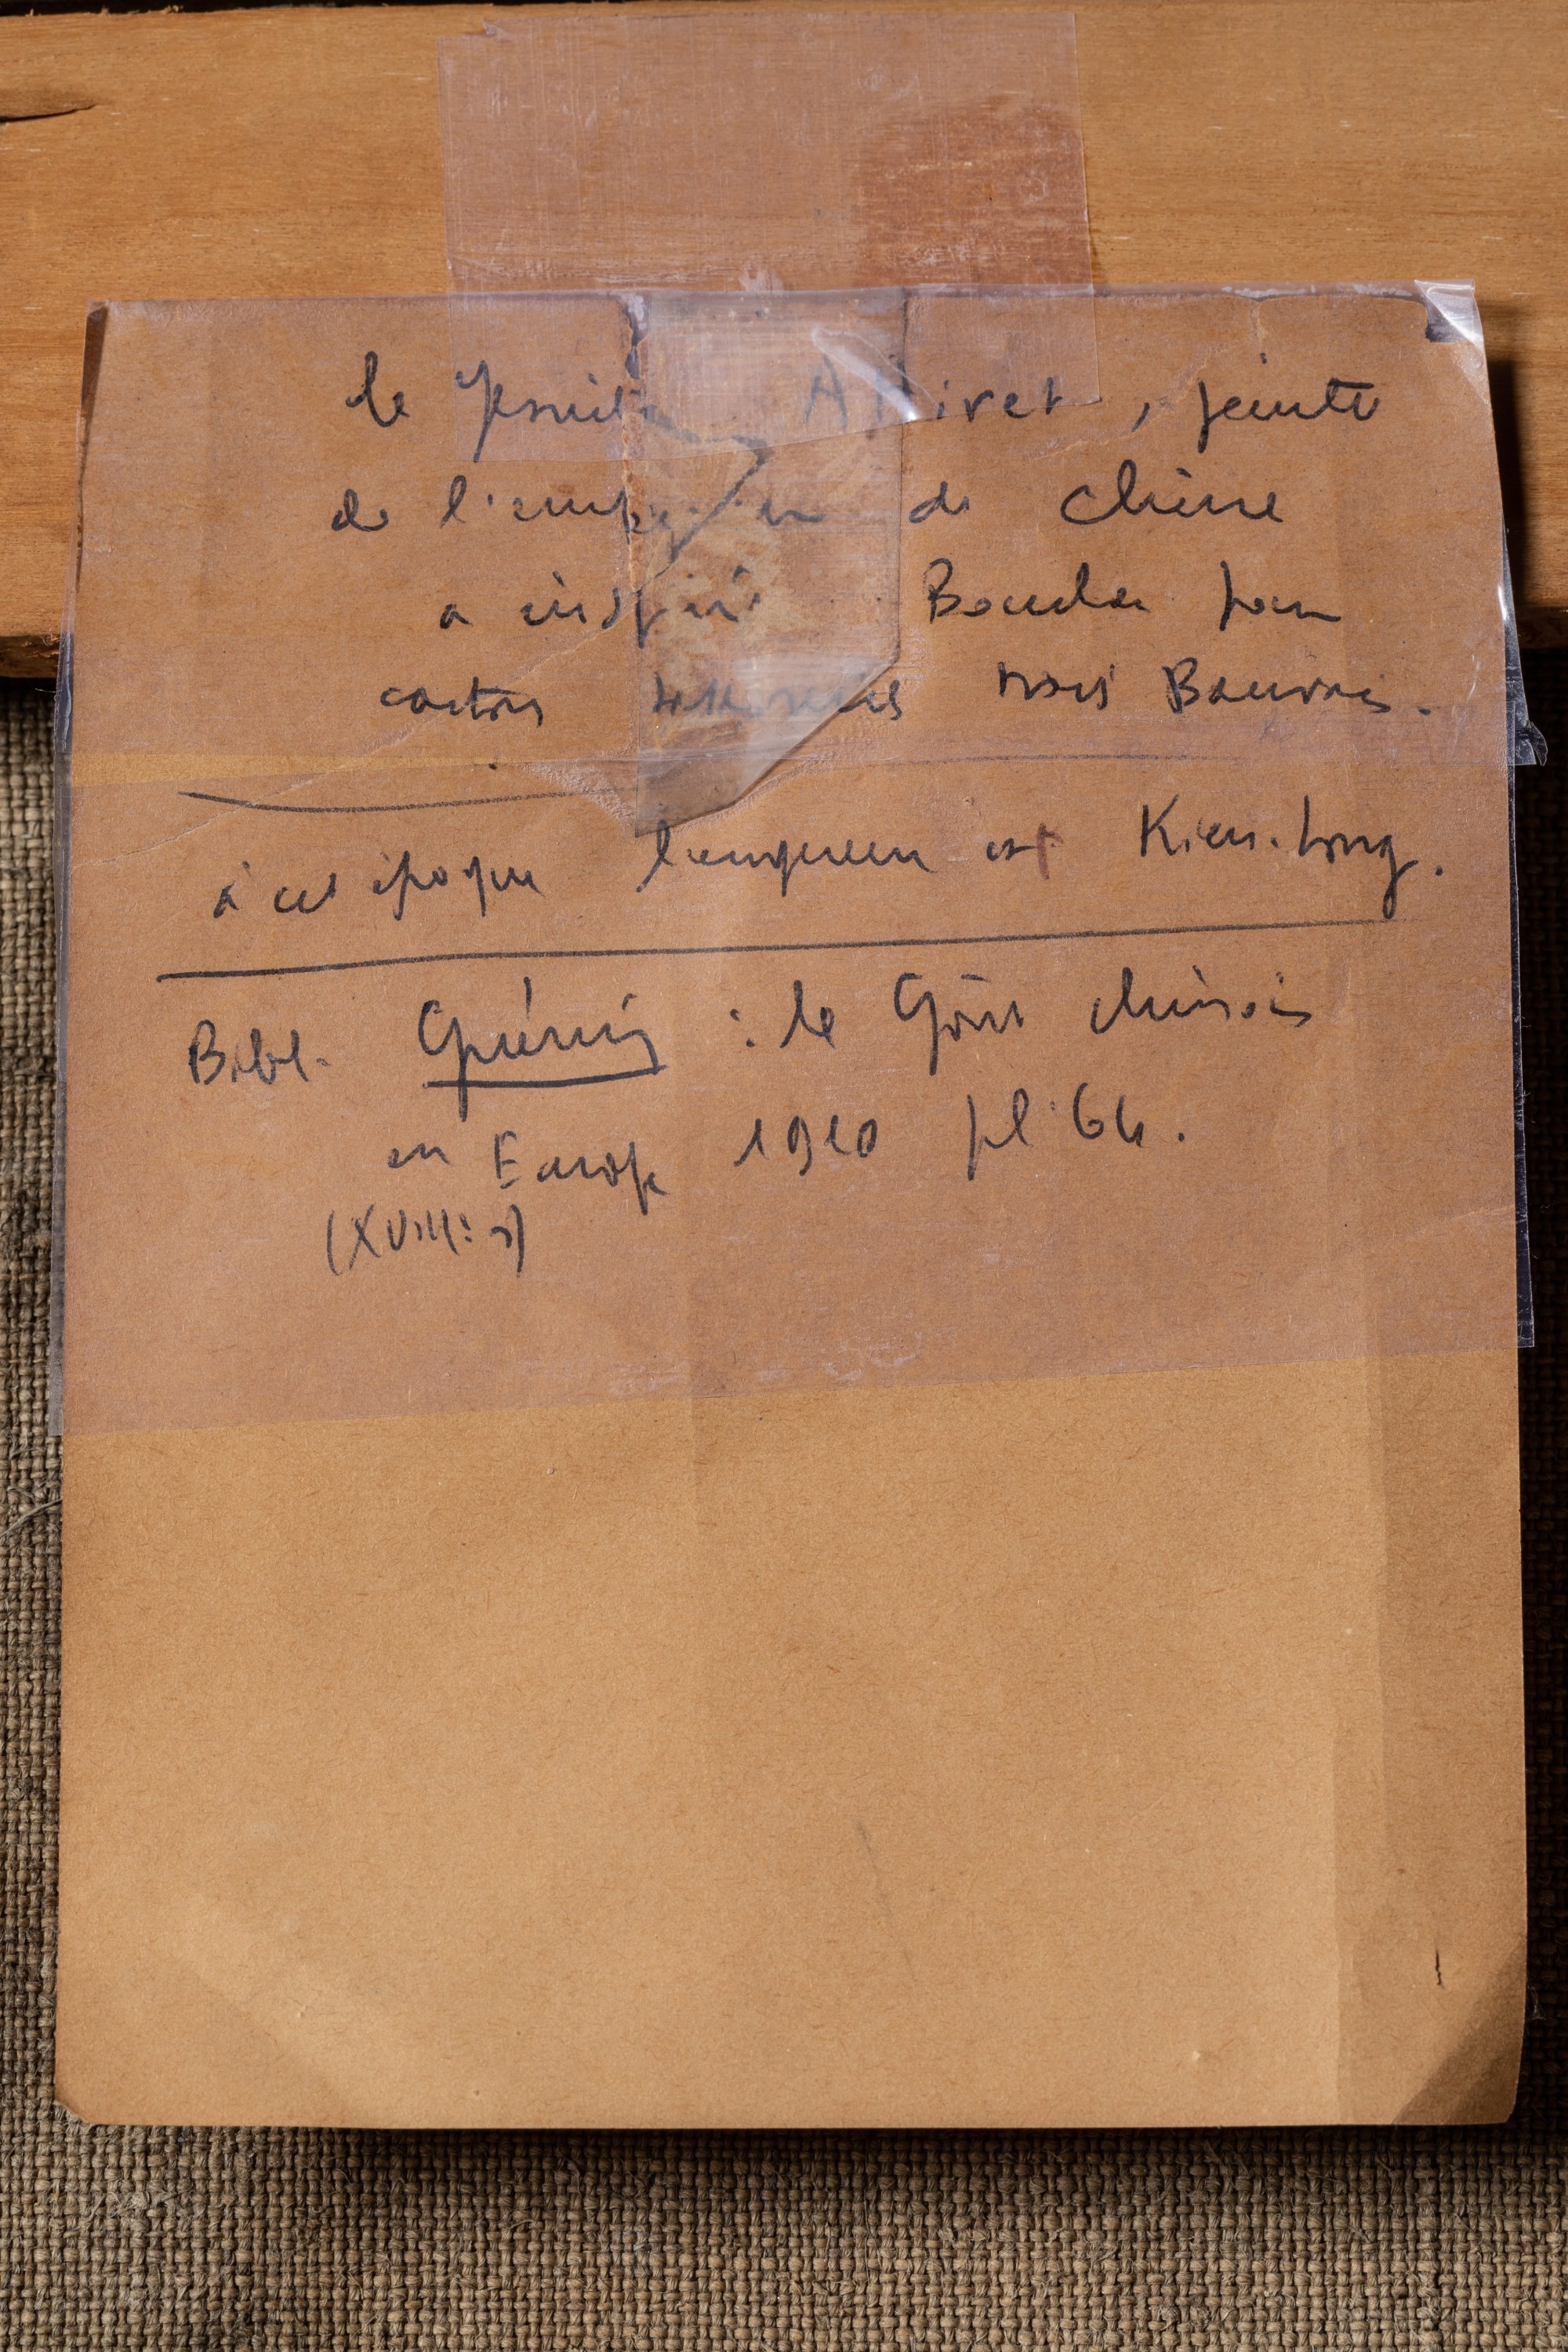 le Jésuite Attiret, peintre
de l'empereur de Chine
a inspiré Boucher pour
cartons tapisseries Beauvais.
à cet époque l'empereur est Kien-Long.
Bibl. Guérin : le Goût chinois
en Europe 1910 pl. 64.
(XVIII: s)